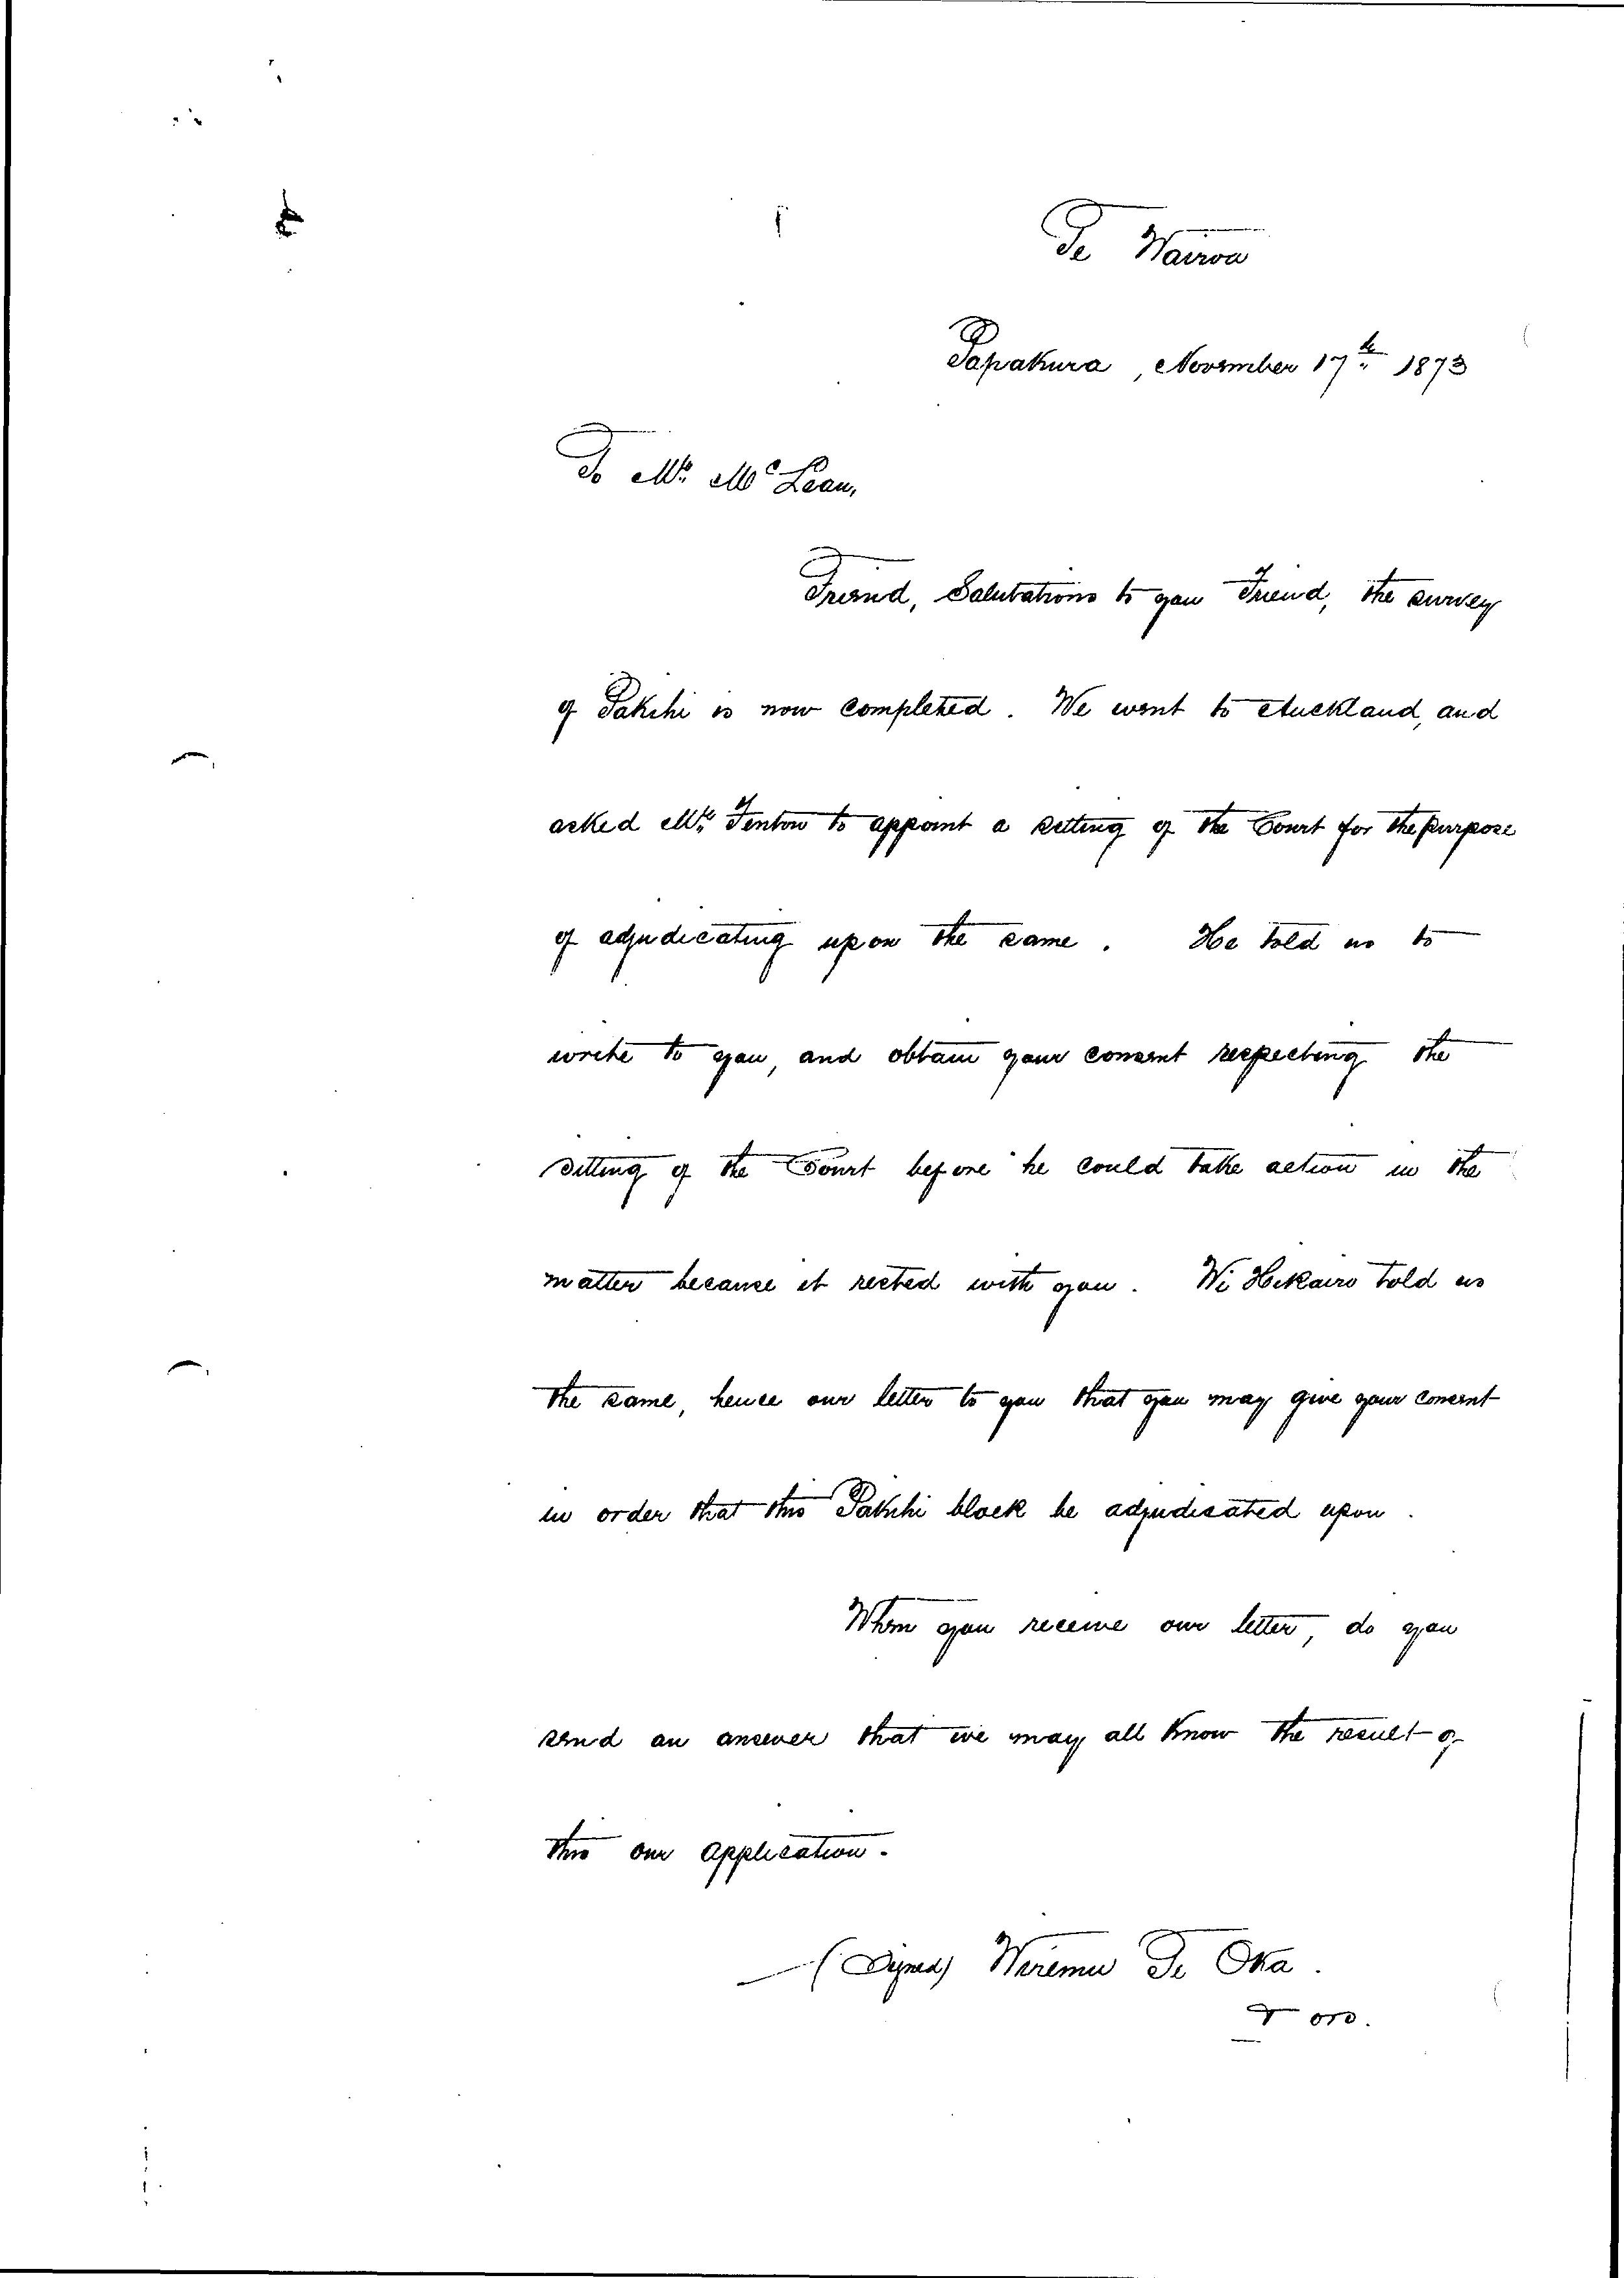 Te Wairoa
Papakura, November 17th 1873
To Mr. McLean,
Friend, Salutations to you Friend, the survey
of Pakihi is now completed. We went to Auckland, and
asked Mr. Fenton to appoint a sitting of the Court for the purpose
of adjudicating upon the same. He told us to
write to you, and obtain your consent respecting the
sitting of the Court before he could take action in the
matter because it rested with you. Wi Hikairo told us
the same, hence our letter to you that you may give your consent
in order that this Pakihi block be adjudicated upon.
When you receive our letter, do you
send an answer that we may all know the result of
this our application.
(Signed) Wiremu Te Oka.